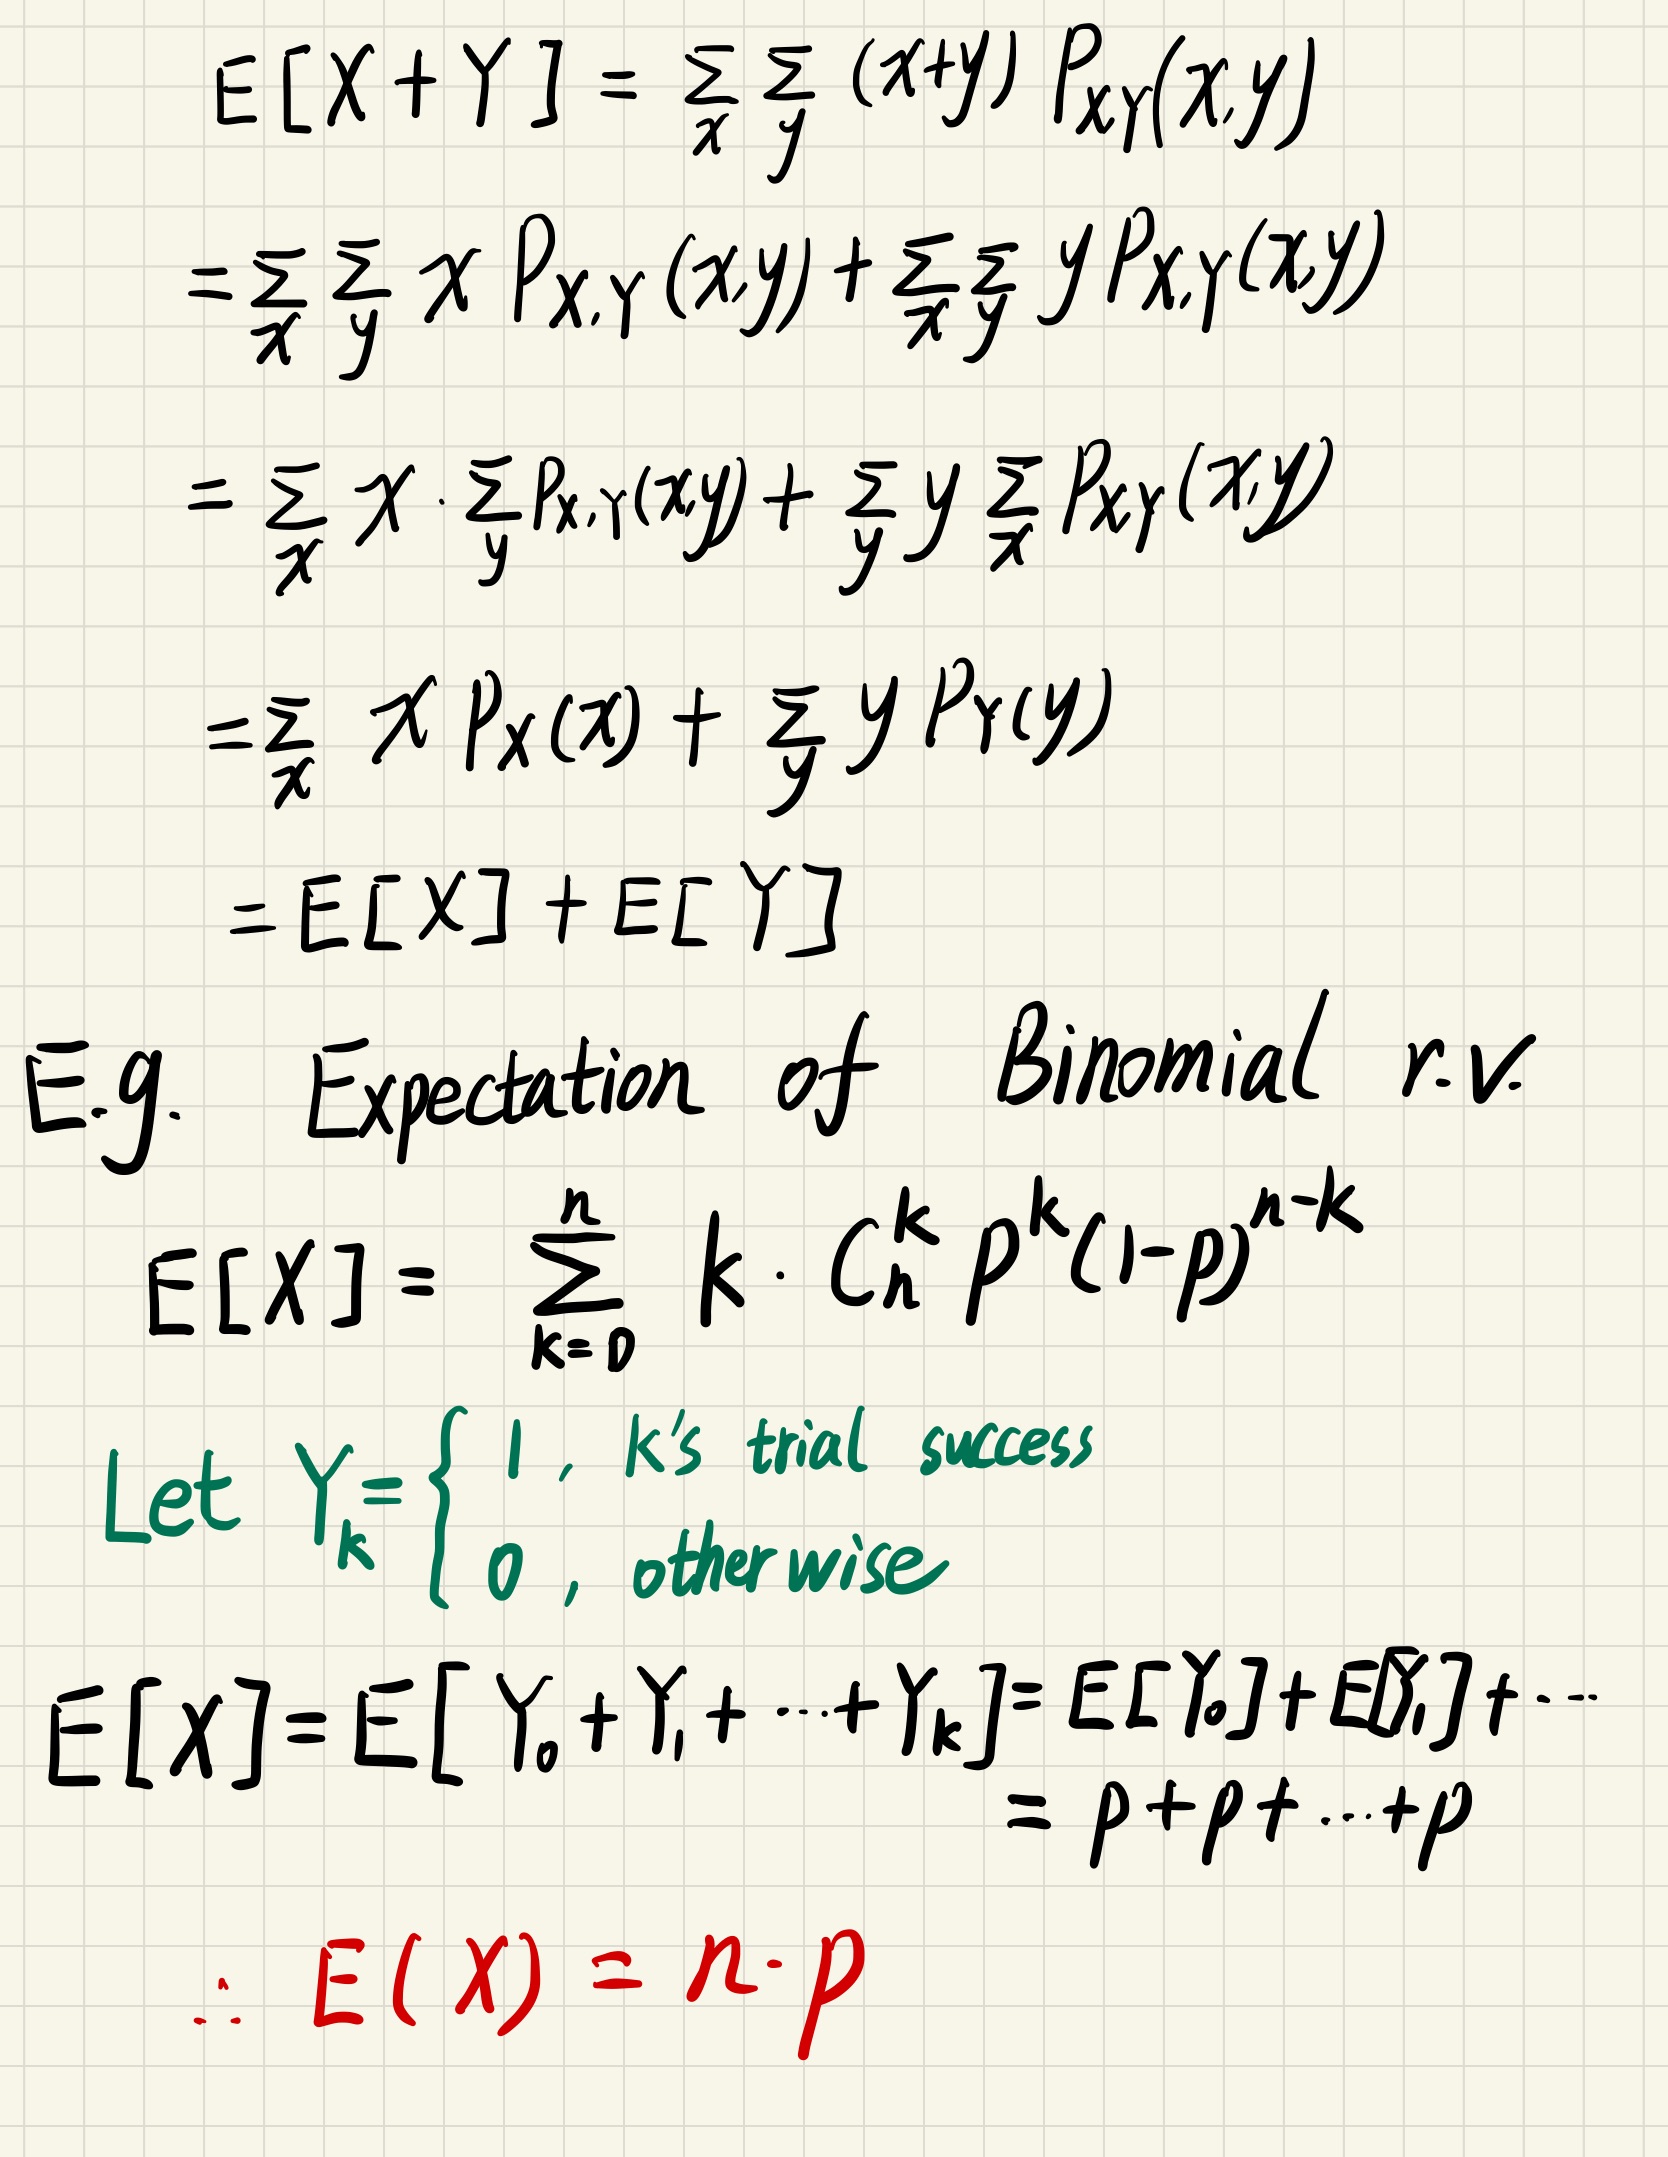 E[X+Y] = Σ_x Σ_y (x+y) P_XY(x,y)
= Σ_x Σ_y x P_X,Y(x,y) + Σ_x Σ_y y P_X,Y(x,y)
= Σ_x x · Σ_y P_X,Y(x,y) + Σ_y y Σ_x P_X,Y(x,y)
= Σ_x x P_X(x) + Σ_y y P_Y(y)
= E[X] + E[Y]
E.g. Expectation of Binomial r.v.
E[X] = Σ_{k=0}^{n} k · C_n^k p^k (1-p)^{n-k}
Let Y_k = { 1, k's trial success
0, otherwise
E[X] = E[Y_0 + Y_1 + ... + Y_k] = E[Y_0] + E[Y_1] + ...
= p + p + ... + p
∴ E(X) = n · p